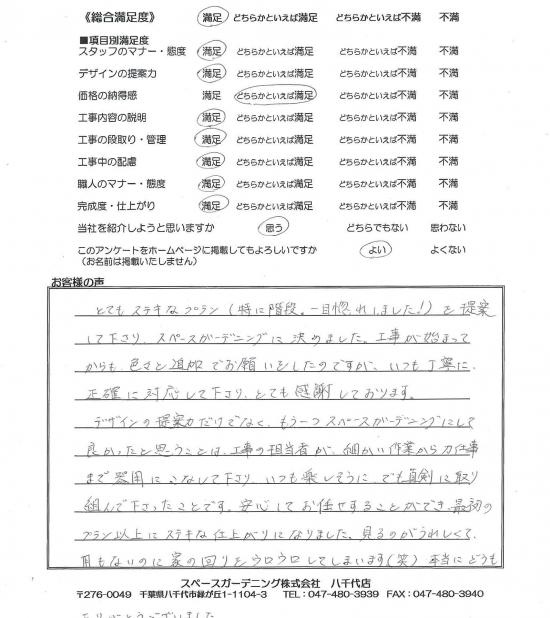 《総合満足度》 満足 どちらかといえば満足 どちらかといえば不満 不満
■項目別満足度
スタッフのマナー・態度 満足 どちらかといえば満足 どちらかといえば不満 不満
デザインの提案力 満足 どちらかといえば満足 どちらかといえば不満 不満
価格の納得感 満足 どちらかといえば満足 どちらかといえば不満 不満
工事内容の説明 満足 どちらかといえば満足 どちらかといえば不満 不満
工事の段取り・管理 満足 どちらかといえば満足 どちらかといえば不満 不満
工事中の配慮 満足 どちらかといえば満足 どちらかといえば不満 不満
職人のマナー・態度 満足 どちらかといえば満足 どちらかといえば不満 不満
完成度・仕上がり 満足 どちらかといえば満足 どちらかといえば不満 不満
当社を紹介しようと思いますか 思う どちらでもない 思わない
このアンケートをホームページに掲載してもよろしいですか よい よくない
(お名前は掲載いたしません)
お客様の声
とてもステキなプラン(特に階段。一目惚れしました!)を提案
して下さり、スペースガーデニングに決めました。工事が始まって
からも、色々と追加でお願いをしたのですが、いつも丁寧に、
正確に対応して下さり、とても感謝しております。
デザインの提案力だけでなく、もう一つスペースガーデニングにして
良かったと思うことは、工事の担当者が、細かい作業から力仕事
まで器用にこなして下さり、いつも楽しそうに、でも真剣に取り
組んで下さったことです。安心してお任せすることができ、最初の
プラン以上にステキな仕上がりになりました。見るのがうれしくて、
用もないのに家の回りをウロウロしてしまいます(笑)本当にどうも
スペースガーデニング株式会社 八千代店
〒276-0049 千葉県八千代市緑が丘1-1104-3 TEL:047-480-3939 FAX:047-480-3940
ありがとうございました